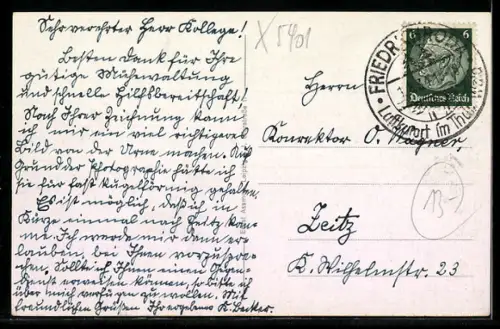 Sehr verehrter Herr Kollege!
Besten Dank für Ihre
gütige Mühewaltung
und schnelle Hilfsbereitschaft!
Nach Ihrer Zeichnung kann
ich mir ein viel richtigeres
Bild von der Urne machen. Auf
Grund der Photographie hätte ich
sie für fast kugelförmig gehalten.
Es ist möglich, daß ich in
Kürze einmal nach Zeitz kom-
me. Ich werde mir dann er-
lauben, bei Ihnen vorzuspre-
chen. Sollte ich Ihnen einen Gegen-
dienst erweisen können, so bitte ich
über mich verfügen zu wollen. Mit
freundlichen Grüßen Ihr ergebener K. Becker.
X 5401
6 6
Deutsches Reich
FRIEDRICHRODA
Luftkurort im Thür
Herrn
Konrektor O. Wagner,
Zeitz
K. Wilhelmstr. 23
13